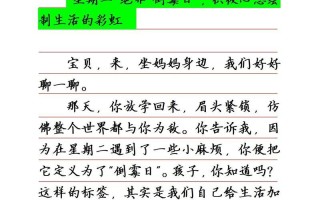 星期二总非“倒霉日”，积极心态绘
制生活的彩虹
宝贝，来，坐妈妈身边，我们好好
聊一聊。
那天，你放学回来，眉头紧锁，仿
佛整个世界都与你为敌。你告诉我，因
为在星期二遇到了一些小麻烦，你便把
它定义为了“倒霉日”。孩子，你知道吗？
这样的标签，其实是我们自己给生活加